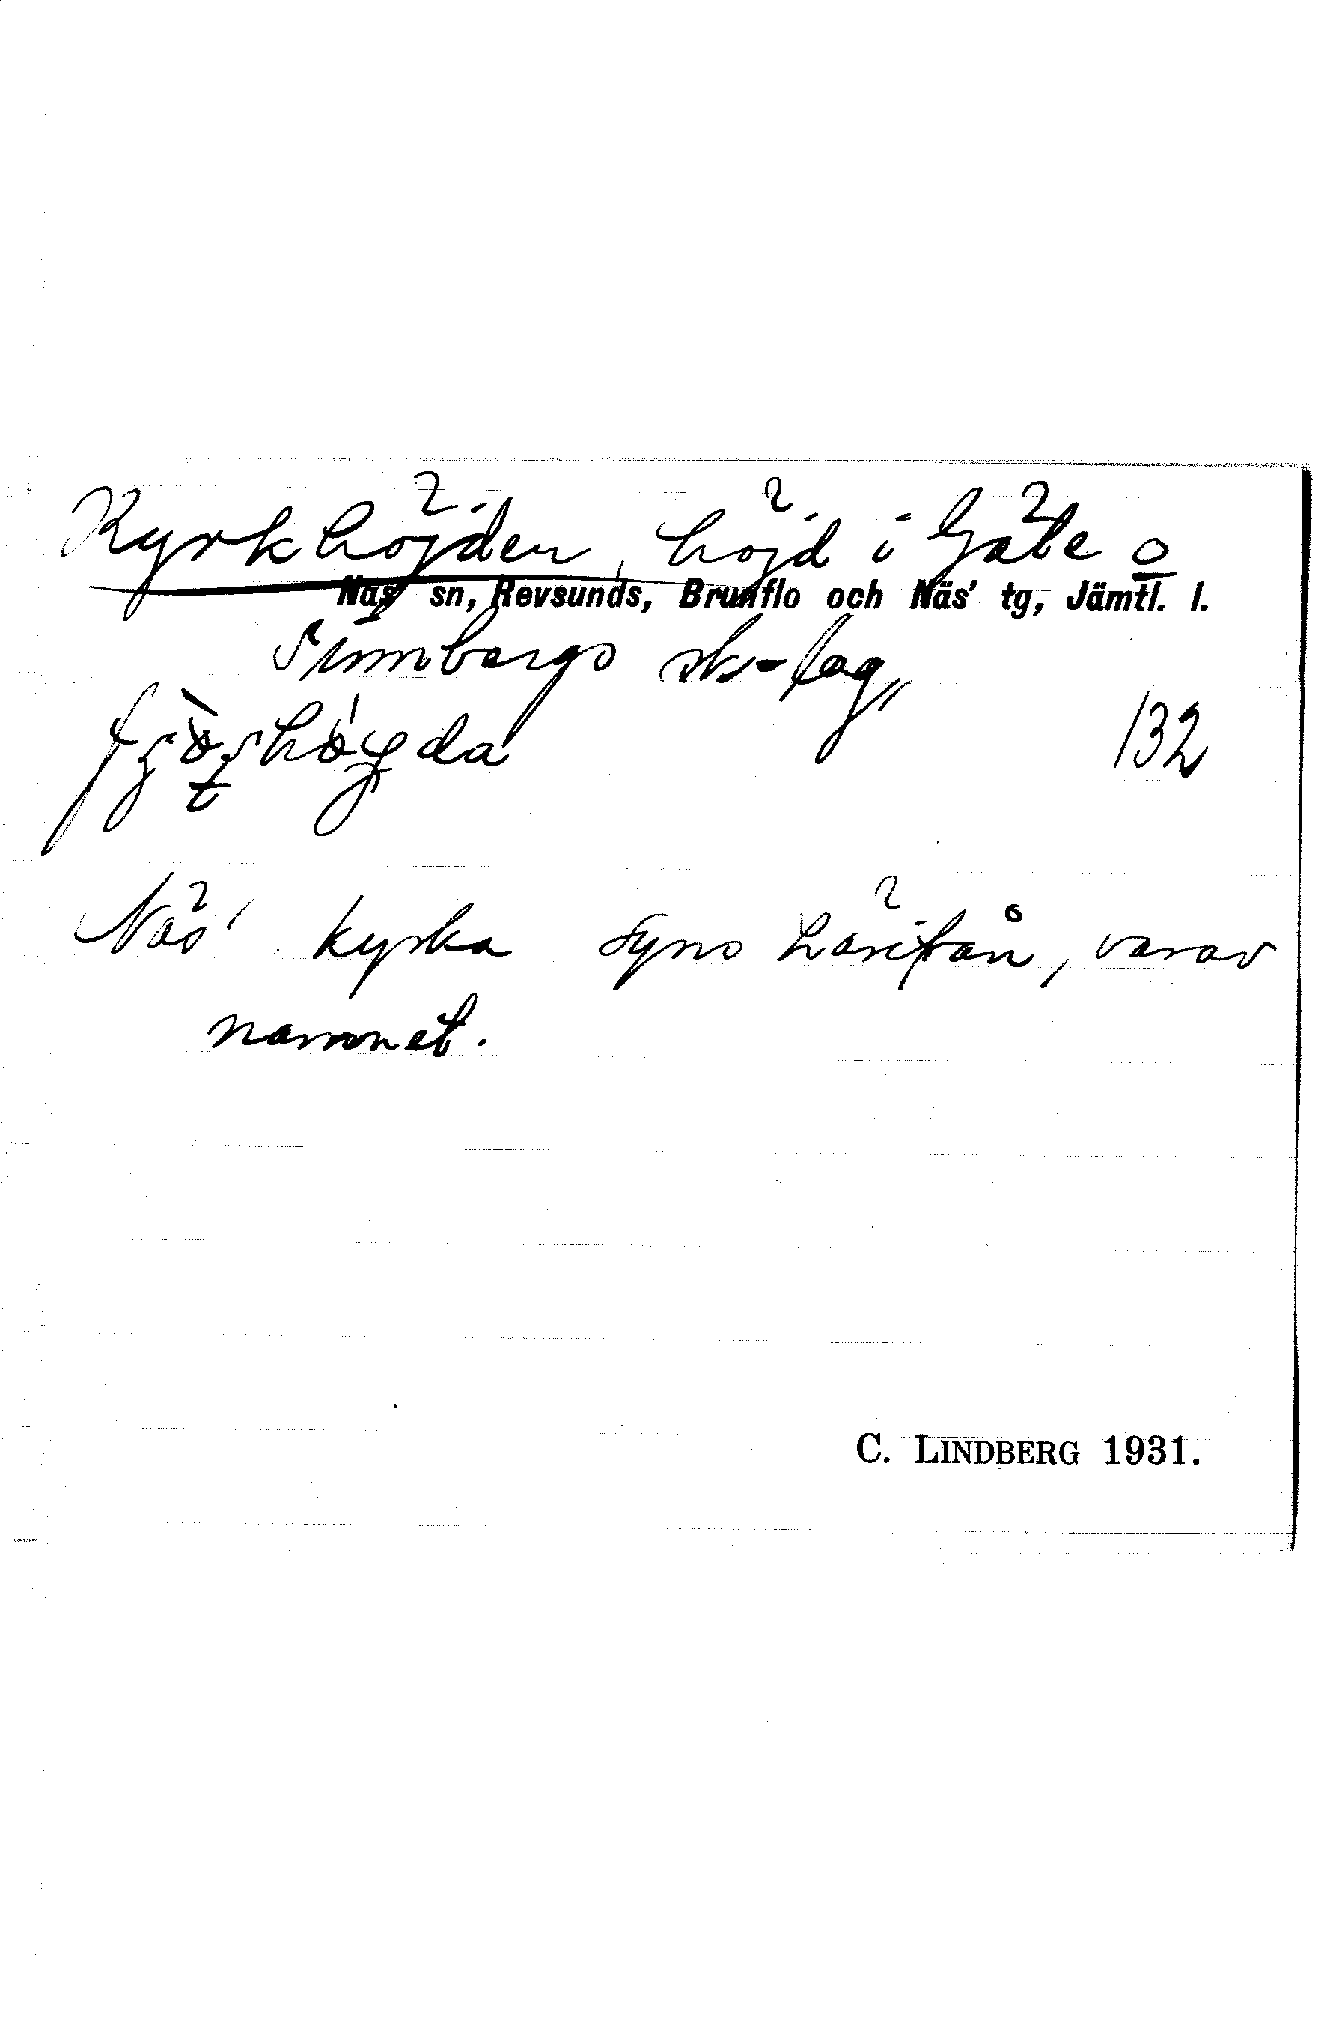 Kyrkhöjden, höjd i Gäle o
Näs sn, Revsunds, Brunflo och Näs' tg, Jämtl. l.
Sunnbergs sk-lag
132
Näs' kyrka syns härifrån, varav
namnet.
C. LINDBERG 1931.